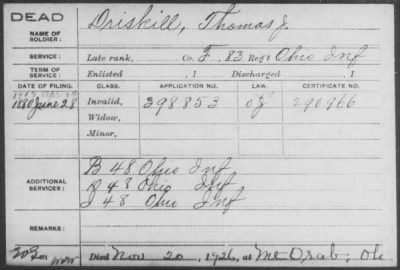 DEAD
NAME OF SOLDIER: Driskill, Thomas J.
SERVICE: Late rank, Co. F. 83 Reg't Ohio Inf
TERM OF SERVICE: Enlisted , 1 Discharged , 1
DATE OF FILING. CLASS. APPLICATION NO. LAW. CERTIFICATE NO.
1880 June 28 Invalid, 398853 290966
Widow,
Minor,
ADDITIONAL SERVICES: B 48 Ohio Inf
D 48 Ohio Inf
I 48 Ohio Inf
REMARKS:
Died Nov. 20, 1926, at Mt Orab, Oh.